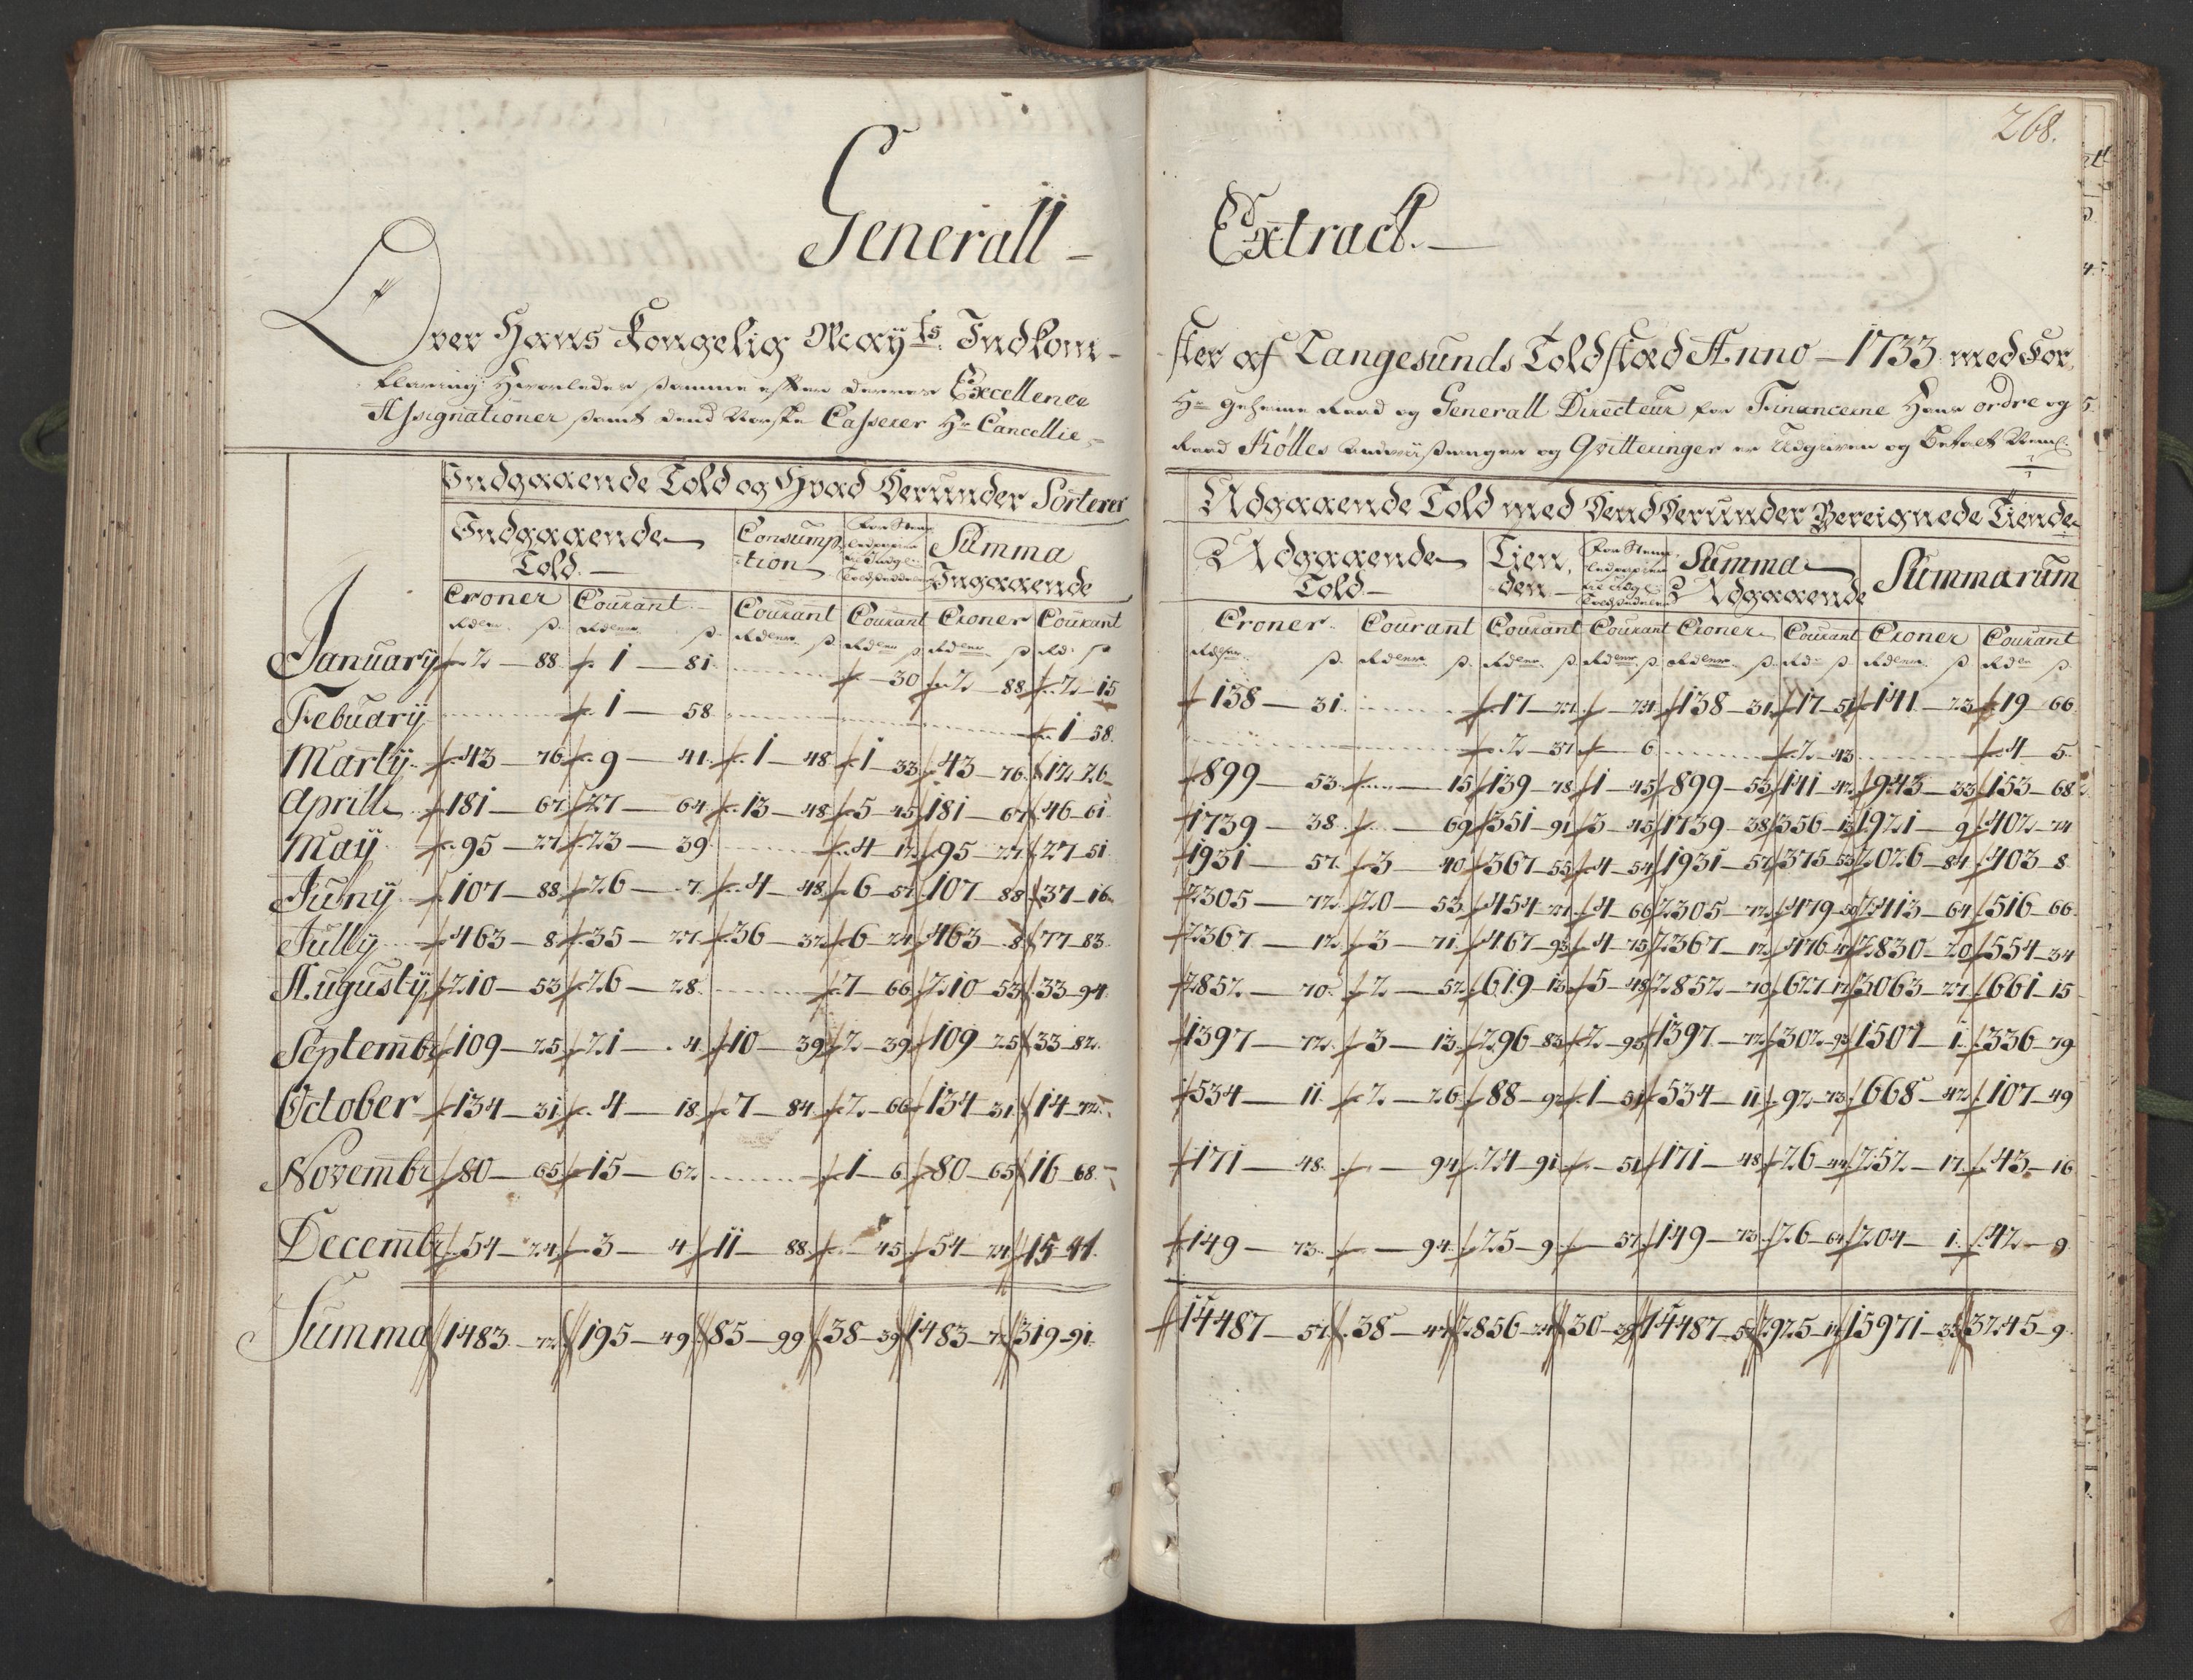 268.
Generall - Extract. —
Over Hans Kongelig May:ts Indkom- -ster af Langesunds Toldsted Anno - 1733 med For
klaring Hvorledes samme efter deres Excellence Hr Geheime Raad og Generall Directeur for Financerne Hans ordre og
Assignationer samt dend Norske Casserer Hr Cancellie- Raad Kølles Qvitteringer er Udgiven og Betalt
Indgaaende Told og Hvad Derunder Sorterer
Indgaaende Told. — Consump-tion Summa Ingaaende
Croner Courant Courant Courant Croner Courant
January 2 — 88 1 — 81 — 30 2 — 88 2 — 15
Febuary 1 — 58 1 — 58
Marty 43 — 76 9 — 41 1 — 48 1 — 33 43 — 76 12 26
Aprill 181 — 67 27 — 64 13 — 48 5 — 45 181 — 67 46 — 61
May 95 — 27 23 — 39 4 — 12 95 — 27 27 — 51
Juny 107 — 88 26 — 7 4 — 48 6 — 57 107 — 88 37 — 16
Jully 463 — 8 35 — 27 36 — 32 6 — 24 463 — 8 77 — 83
Augusty 210 — 53 26 — 28 7 — 66 210 — 53 33 — 94
Septembr 109 — 25 21 — 4 10 — 39 2 — 39 109 — 25 33 — 82
October 134 — 31 4 — 18 7 — 84 2 — 66 134 — 31 14 — 72
Novembr 80 — 65 15 — 62 1 — 6 80 — 65 16 — 68
Decembr 54 — 24 3 — 4 11 — 88 — 45 54 — 24 15 — 41
Summa 1483 — 72 195 — 49 85 — 99 38 — 39 1483 — 72 319 — 91
Udgaaende Told med Dend Derunder Bereignede Tiende
Udgaaende Told — Tien-den — Summa Udgaaende Summarum
Croner Courant Courant Courant Croner Courant Croner Courant
138 — 31 17 — 27 — 24 138 — 31 17 — 51 141 — 23 19 — 66
2 — 37 6 2 — 43 4 — 5
899 — 53 — 15 139 — 78 1 — 45 899 — 53 141 — 42 943 — 33 153 — 68
1739 — 38 — 69 351 — 91 3 — 45 1739 — 38 356 — 13 1921 — 9 402 — 74
1931 — 57 3 — 40 367 — 55 4 — 54 1931 — 57 375 — 53 2026 — 84 403 — 8
2305 — 72 20 — 53 454 — 27 4 — 66 2305 — 72 479 — 50 2413 — 64 516 — 66
2367 — 12 3 — 71 467 — 93 4 — 75 2367 — 12 476 — 47 2830 — 20 554 — 34
2852 — 70 2 — 52 619 — 13 5 — 48 2852 — 70 627 — 17 3063 — 27 661 — 15
1397 — 72 3 — 13 296 — 83 2 — 93 1397 — 72 302 — 93 1507 — 1 336 — 79
534 — 11 2 — 26 88 — 92 1 — 51 534 — 11 92 — 73 668 — 42 107 — 49
171 — 48 — 94 24 — 91 — 51 171 — 48 26 — 44 252 — 17 43 — 16
149 — 73 — 94 25 — 9 — 57 149 — 73 26 — 64 204 — 1 42 — 9
14487 — 57 38 — 47 2856 — 24 30 — 39 14487 — 57 2925 — 14 15971 — 33 3245 — 9